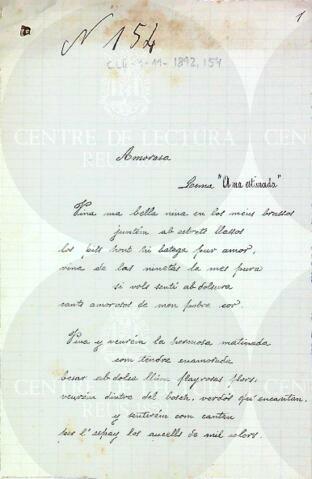 1
N 154
CLE-4-11-1892,154
CENTRE DE LECTURA
REUS
Amorosa
Lema "A ma estimada"
Vina ma bella nena en los meus brassos
juntém ab estrets llassos
los pits hont hi batega pur amor,
vina de las ninetas la mes pura
si vols sentí ab dolsura
cants amorosos de mon pobre cor.
Vina y veurém la hermosa matinada
com tendre enamorada
besar ab dolsa llum flayrosas flors,
veurém dintre del bosch, verdós qu' encantan,
y sentirém com cantan
per l' espay los aucells de mil colors.
CENTRE DE LECTURA
REUS